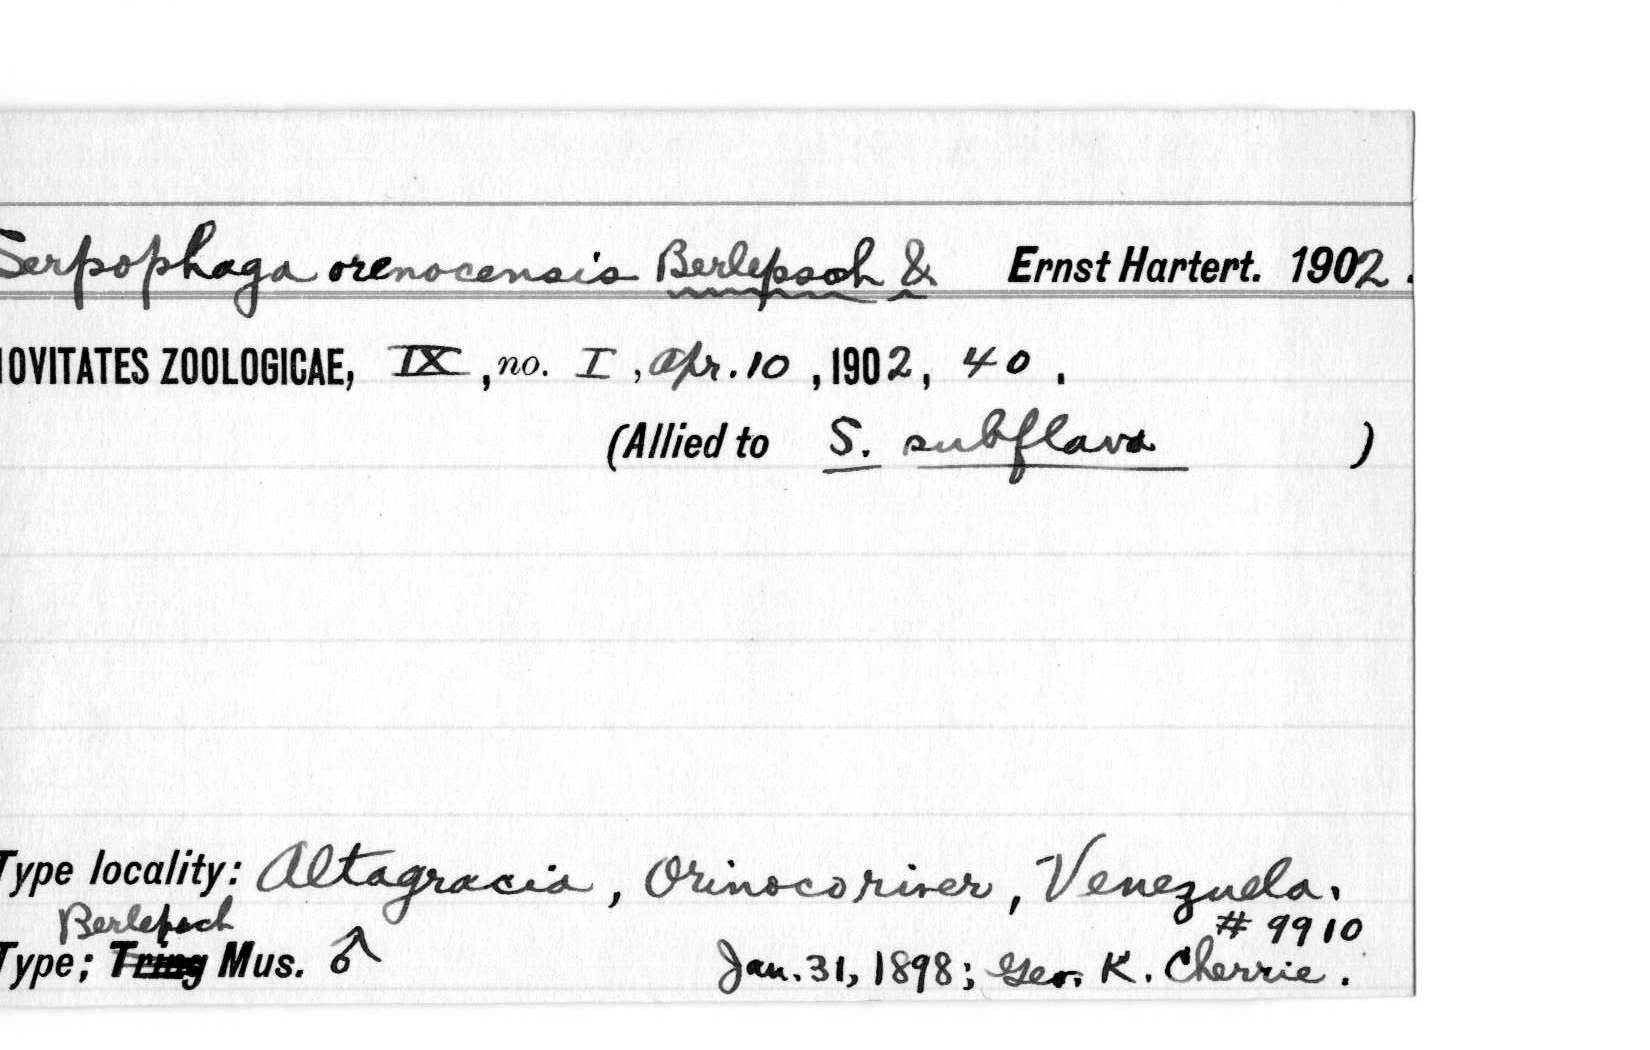 Serpophaga orenocensis Berlepsch & Ernst Hartert. 1902.
NOVITATES ZOOLOGICAE, IX, no. I, Apr. 10, 1902, 40.
(Allied to S. subflava )
Type locality: Altagracia, Orinoco river, Venezuela.
Berlepsch # 9910
Type; Tring Mus. ♂ Jan. 31, 1898; Geo. K. Cherrie.